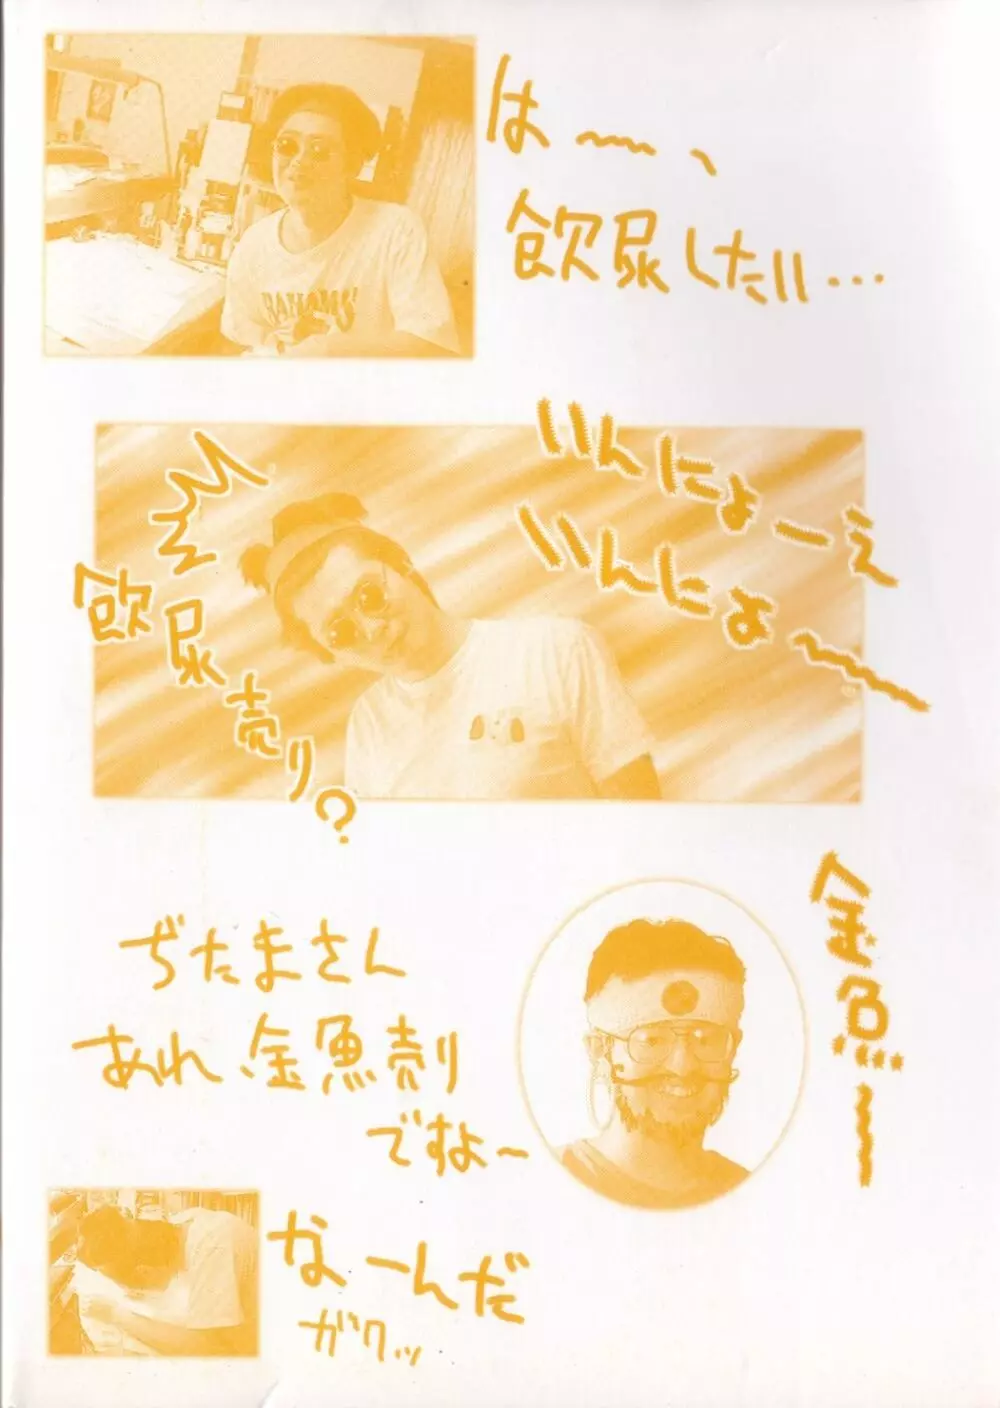 は〜、
飲尿したい…
BAHAMAS
いんにょーえ
いんにょ〜
飲尿売り?
金魚ー
ぢたまさん
あれ金魚売り
ですよ〜
なーんだ
ガクッ